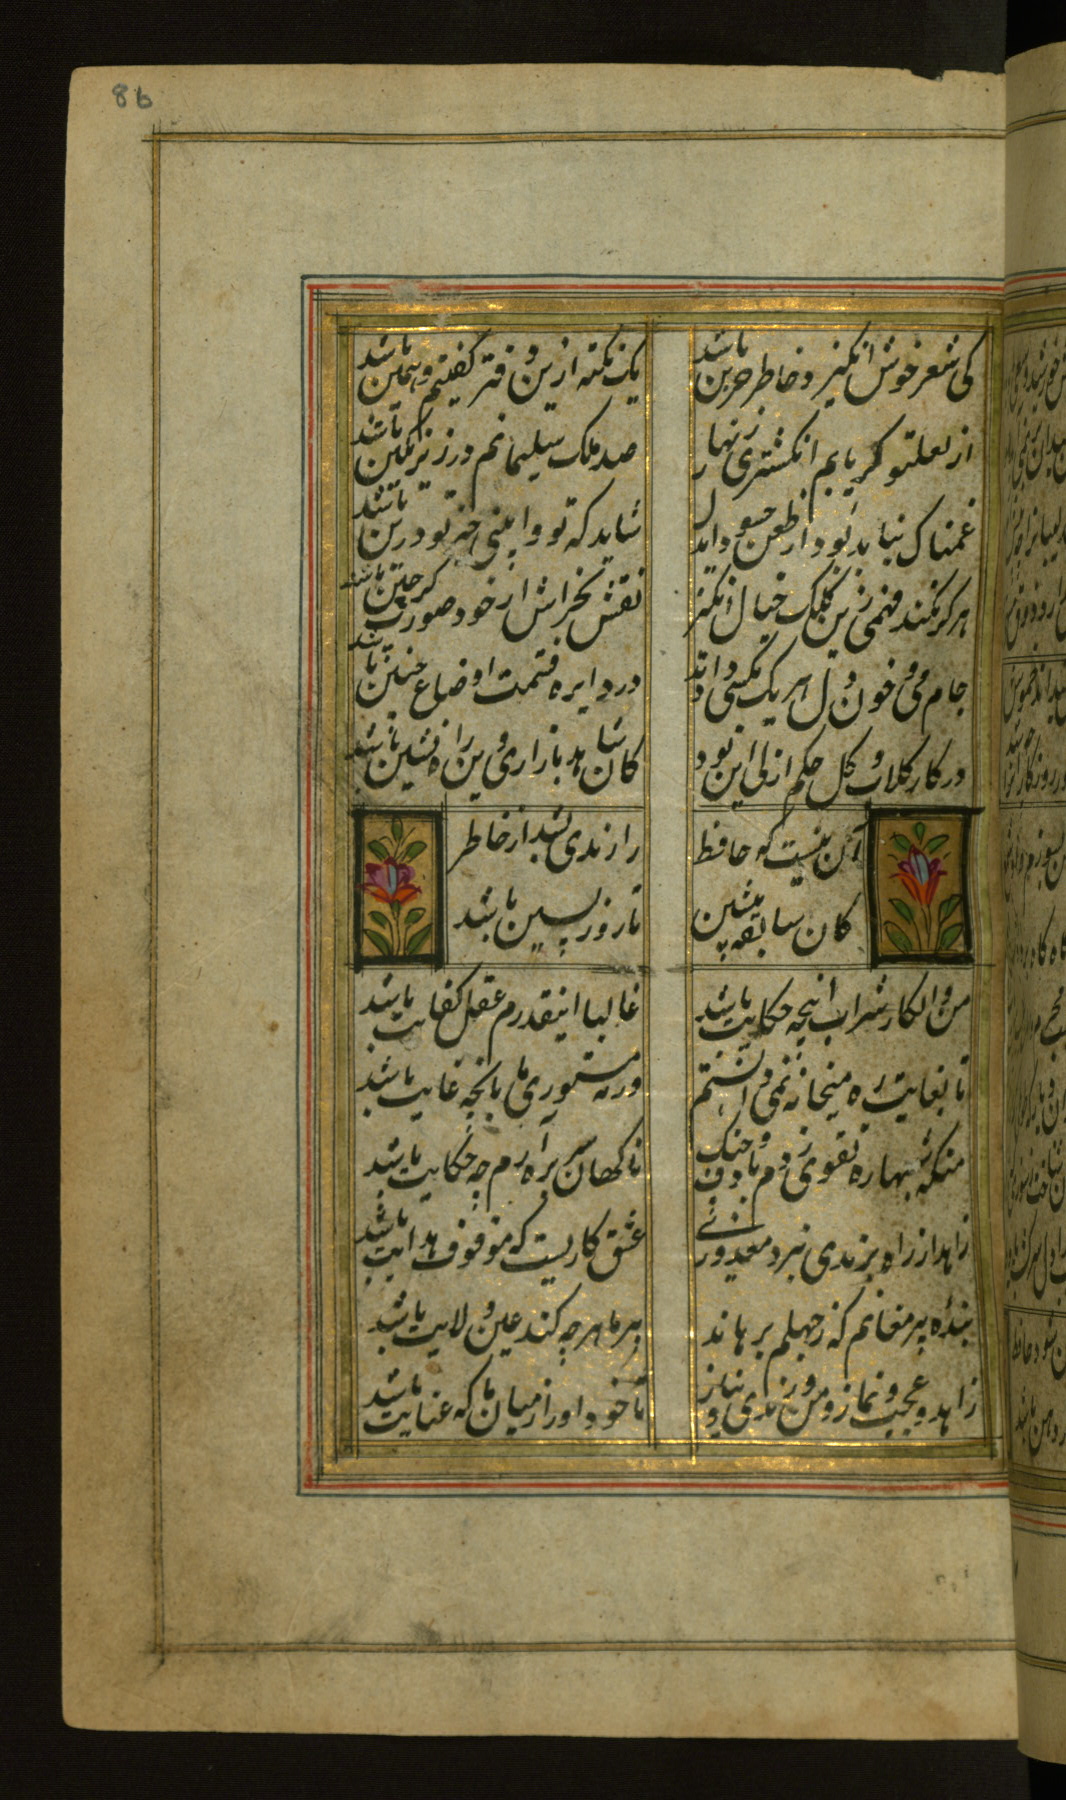 86
کی شعر خوش انگیز و خاطر حزین باشد
یک نکته ازین دفتر گفتیم و همین باشد
از لعلتو گر یابم انگشتری زنهار
صد ملک سلیمانم در زیر نگین باشد
غمناک نباید بود از طعن حسود ایدل
شاید که تو وا بینی خیر تو درین باشد
هر کو نکند فهمی زین کلک خیال انگیز
نقش بخراش ار خود صورتگر چین باشد
جام می و خون دل هر یک بکسی دادند
در دایره قسمت اوضاع چنین باشد
در کار گلاب و گل حکم ازلی این بود
کان شاهد بازاری وین پرده نشین باشد
آن نیست که حافظ
را رندی بشد از خاطر
کان سابقه پیشین
تا روز پسین باشد
من و انکار شراب اینچه حکایت باشد
غالبا اینقدرم عقل کفایت باشد
تا بغایت ره میخانه نمی دانستم
ورنه مستوری ما تا بچه غایت باشد
منکه شبها ره تقوی زدم با دف و چنک
ناکهان سر براه آرم چه حکایت باشد
زاهد ار راه برندی نبرد معذورست
عشق کاریست که موقوف هدایت باشد
بندۀ پیر مغانم که ز جهلم برهاند
پیر ما هر چه کند عین ولایت باشد
زاهد و عجب و نماز و من و رندی و نیاز
تا خود او را ز میان با که عنایت باشد